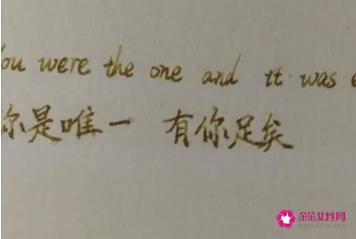 ou were the one and it was
尔是唯一 有你足矣
朵朵女性网